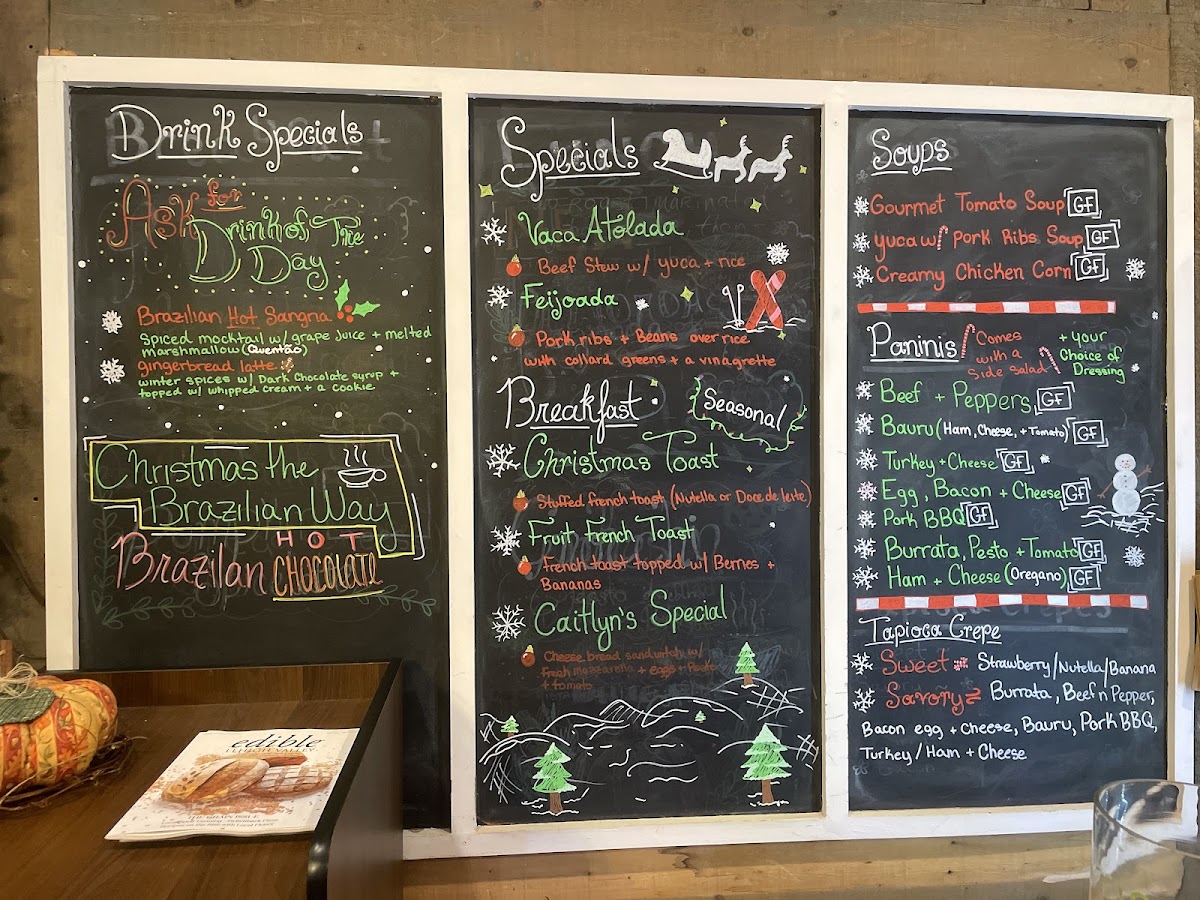 Drink Specials
Ask for
Drink of The
Day
Brazilian Hot Sangria
spiced mocktail w/ grape juice + melted
marshmallow (Quentão)
gingerbread latte
winter spices w/ Dark Chocolate syrup +
topped w/ whipped cream + a cookie
Christmas the
Brazilian Way
HOT
Brazilan CHOCOLATE
Specials
Vaca Atolada
Beef Stew w/ yuca + rice
Feijoada
Pork ribs + Beans over rice
with collard greens + a vinagrette
Breakfast
Seasonal
Christmas Toast
Stuffed french toast (Nutella or Doce de leite)
Fruit French Toast
french toast topped w/ Berries +
Bananas
Caitlyn's Special
Cheese bread sandwich w/
fresh mozzarella + eggs + Pesto
+ tomato
Soups
Gourmet Tomato Soup GF
yuca w/ Pork Ribs Soup GF
Creamy Chicken Corn GF
Paninis
Comes
with a
side salad
+ your
Choice of
Dressing
Beef + Peppers GF
Bauru (Ham, Cheese, + Tomato) GF
Turkey + Cheese GF
Egg, Bacon + Cheese GF
Pork BBQ GF
Burrata, Pesto + Tomato GF
Ham + Cheese (Oregano) GF
Tapioca Crepe
Sweet Strawberry/Nutella/Banana
Savory Burrata, Beef n' Pepper,
Bacon egg + Cheese, Bauru, Pork BBQ,
Turkey / Ham + Cheese
edible
LEHIGH VALLEY
THE GRAIN ISSUE